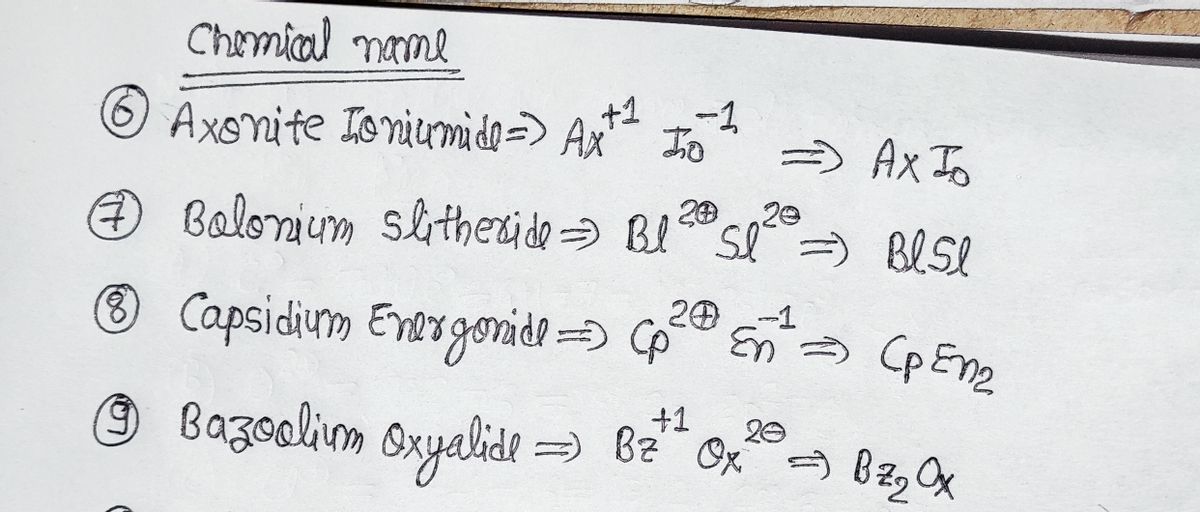 Chemical name
⑥ Axonite Ioniumide => Ax⁺¹ Io⁻¹ => AxIo
⑦ Balonium slitheride => Bl²⊕ Sl²⊖ => BlSl
⑧ Capsidium Energonide => Cp²⊕ En⁻¹ => CpEn₂
⑨ Bazoolium Oxyalide => Bz⁺¹ Ox²⊖ => Bz₂Ox